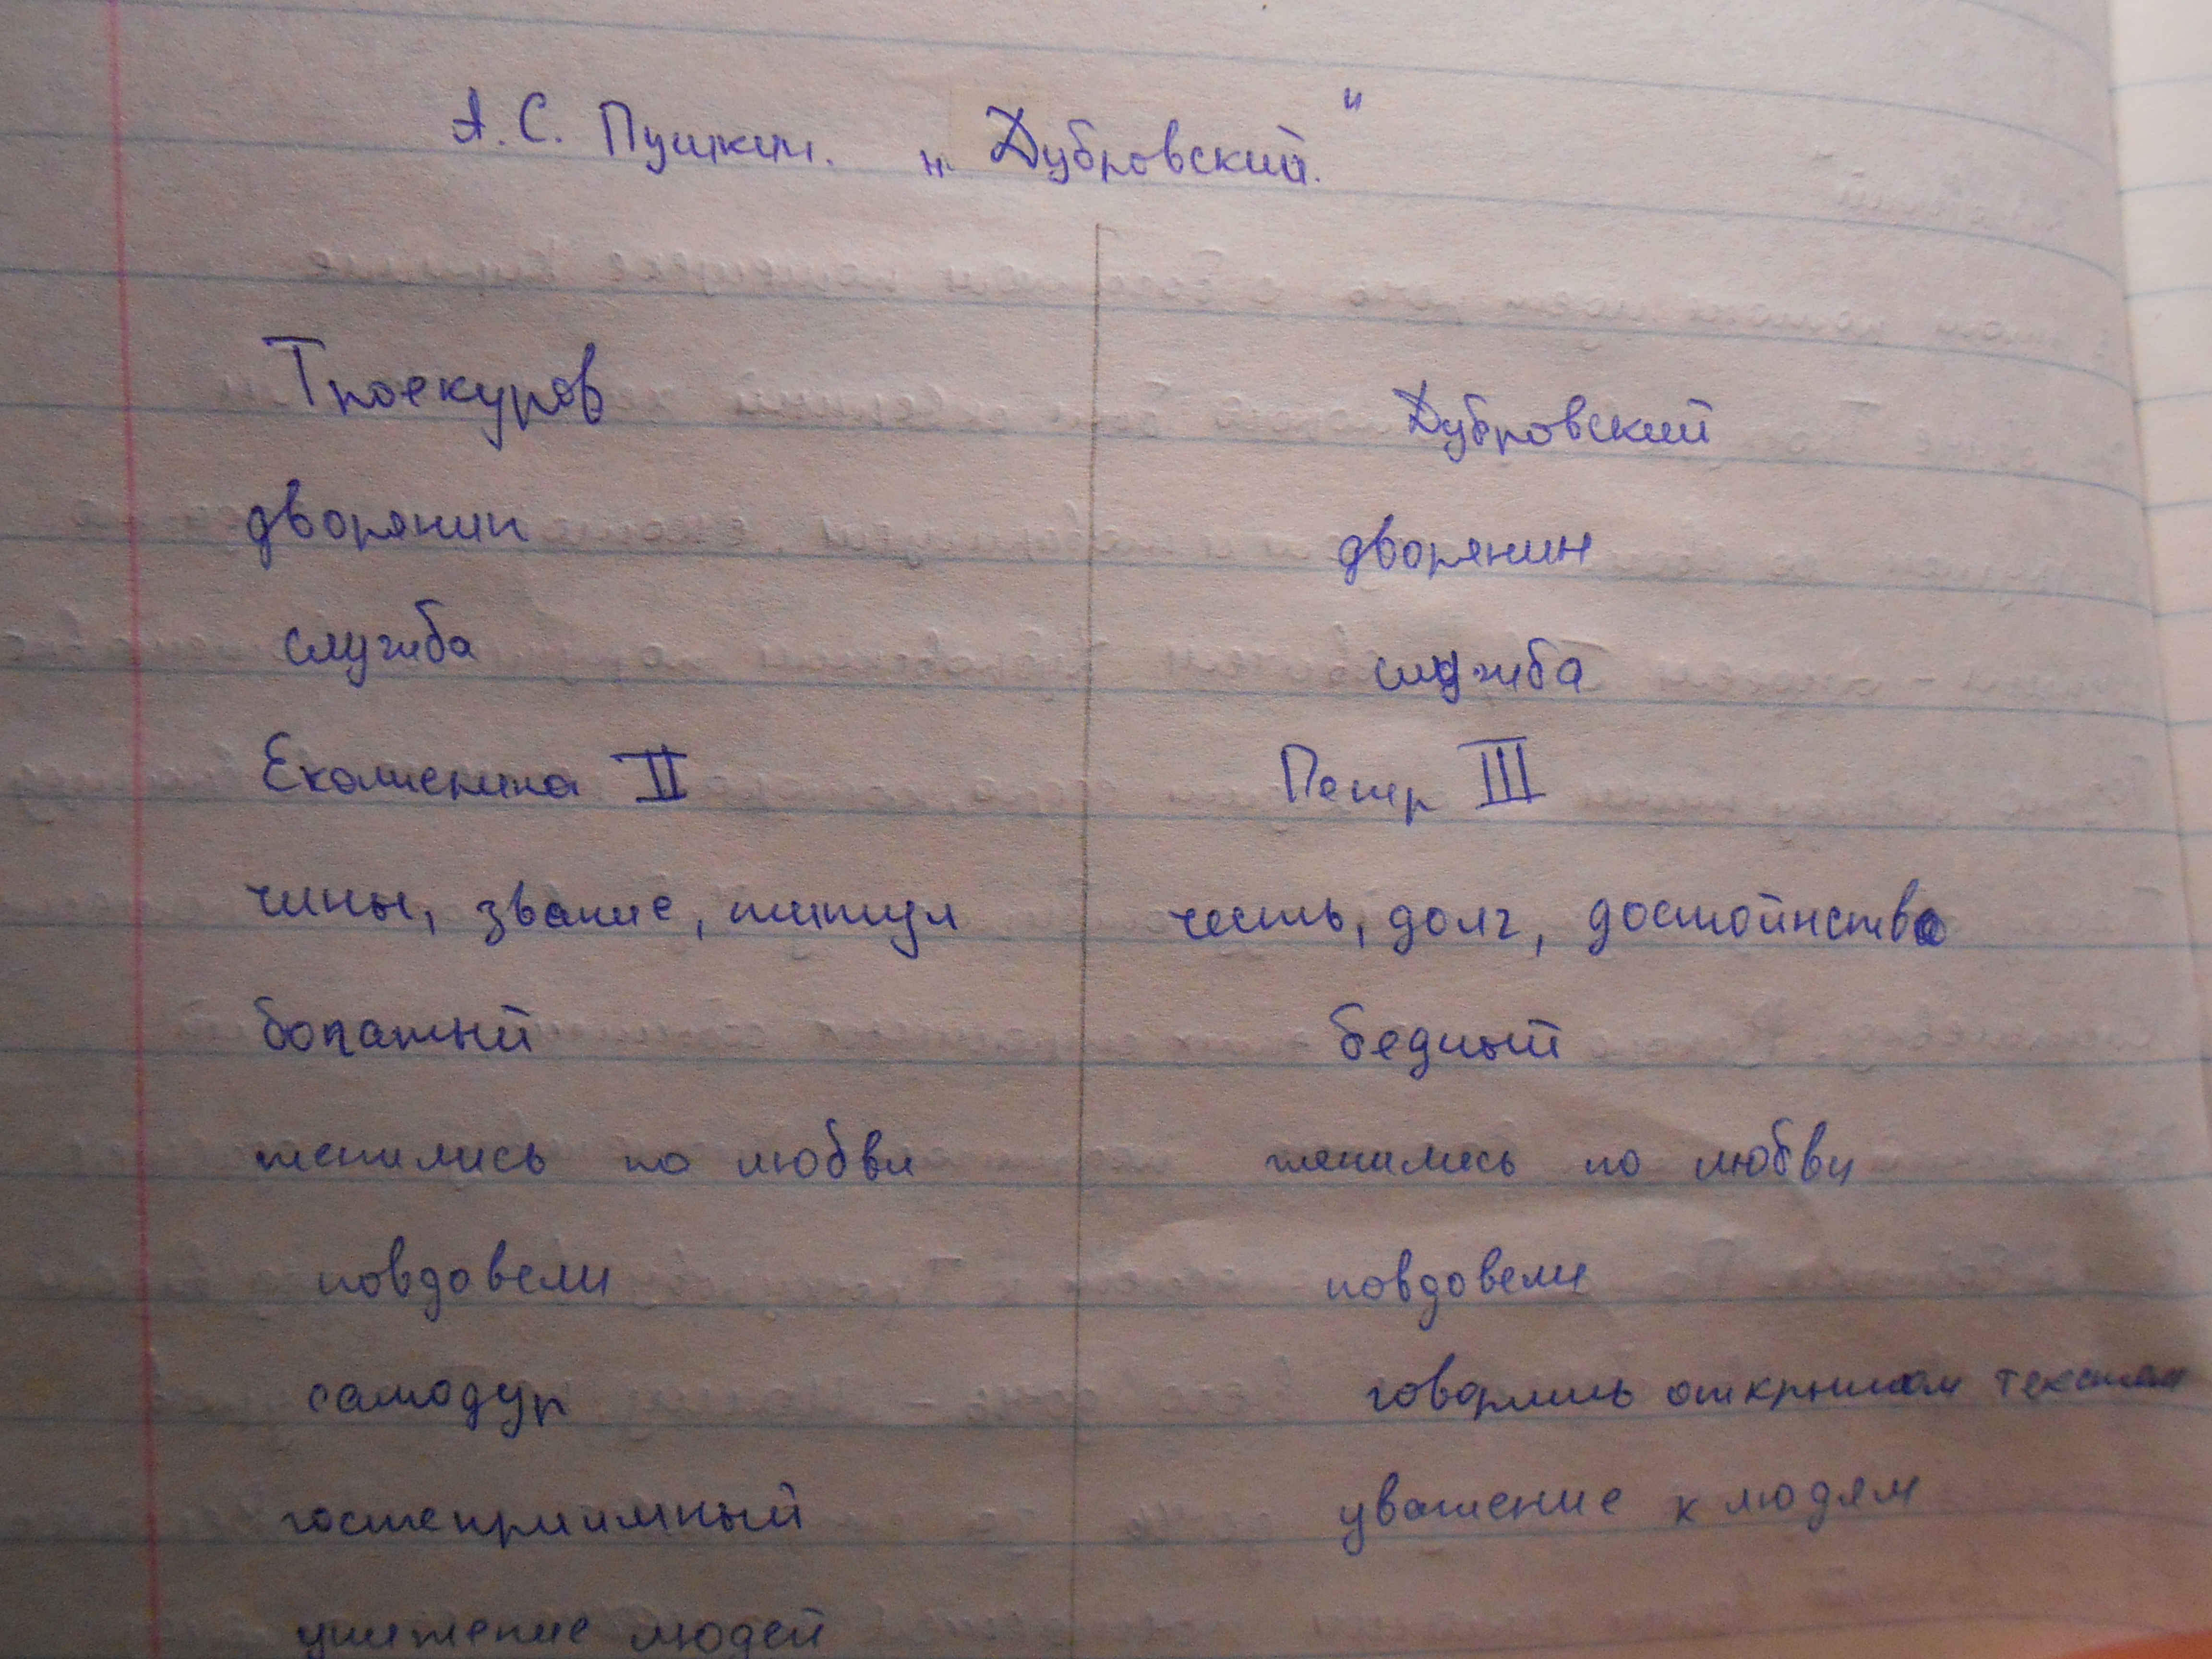 А.С. Пушкин. „Дубровский."
Троекуров
Дубровский
дворянин
дворянин
служба
служба
Екатерина II
Петр III
чины, звание, титул
честь, долг, достоинство
богатый
бедный
женились по любви
женились по любви
повдовели
повдовели
самодур
говорить открытом текстом
гостеприимный
уважение к людям
унижение людей